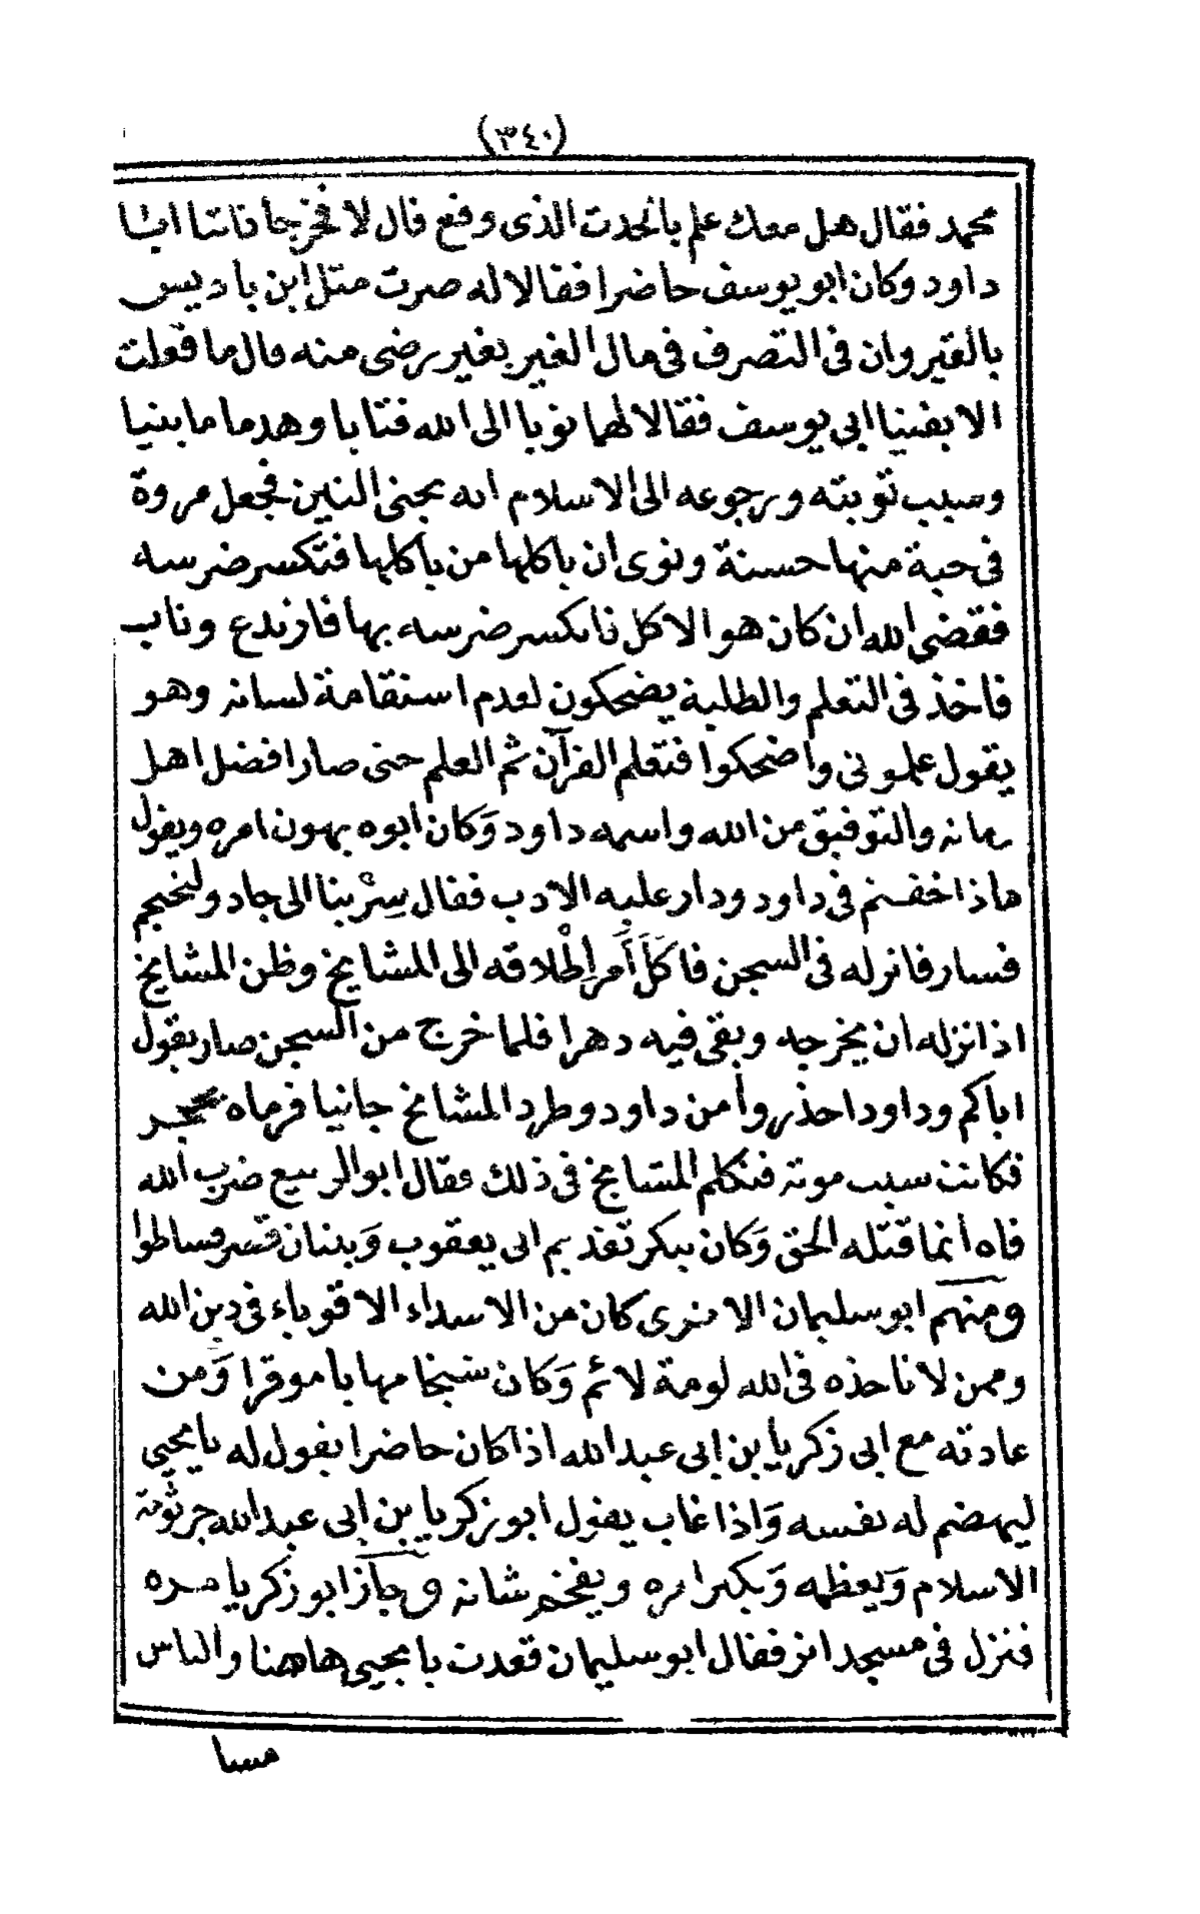 (٣٤٠)
محمد فقال هل معك علم بالحدث الذى وقع قال لا فخرجا فاتيا ابا
داود وكان ابو يوسف حاضرا فقالا له صرت مثل ابن باديس
بالقيروان فى التصرف فى مال الغير بغير رضى منه قال ما فعلت
الا بفتيا ابى يوسف فقالا لهما توبا الى الله فتابا وهدما ما بنيا
وسبب توبته ورجوعه الى الاسلام انه يجنى التين فجعل مروة
فى حبة منها حسنة ونوى ان ياكلها من ياكلها فتكسر ضرسه
فقضى الله ان كان هو الاكل فانكسر ضرسه بها فارتدع وتاب
فاخذ فى التعلم والطلبة يضحكون لعدم استقامة لسانه وهو
يقول علمونى واضحكوا فتعلم القرآن ثم العلم حتى صار افضل اهل
زمانه والتوفيق من الله واسمه داود وَكان ابوه يهون امره ويقول
ماذا خفتم فى داود ودار عليه الادب فقال سِرْ بنا الى جادو لنخيم
فسار فانزله فى السجن فاكَلَ أَمر إِطْلاقه الى المشايخ وظن المشايخ
اذ انزله ان يخرجه وبقى فيه دهرا فلما خرج من السجن صار يقول
اياكم وداود احذروا من داود وطرد المشائخ جانيا فرماه بحجر
فكانت سبب موته فتكلم المشايخ فى ذلك فقال ابو الربيع ضرب الله
فاه انما قتله الحق وَكان ببكر تغذيم ابى يعقوب وَبنان قسر فساطوا
ومنهم ابو سليمان الابنرى كان من الاسداء الاقوياء فى دين الله
وممن لا تاخذه فى الله لومة لائم وَكان شيخا مهابا موقرا وَمن
عادته مع ابى زكريا بن ابى عبد الله اذا كان حاضرا يقول له يا يحيى
ليهضم له نفسه وَاذا غاب يقول ابو زكريا بن ابى عبد الله جرثومة
الاسلام وَيعظمه وَيكبر امره ويفخم شانه وجاز ابو زكريا مره
فنزل فى مسجد انر فقال ابو سليمان قعدت يا يحيى هاهنا والناس
مسا